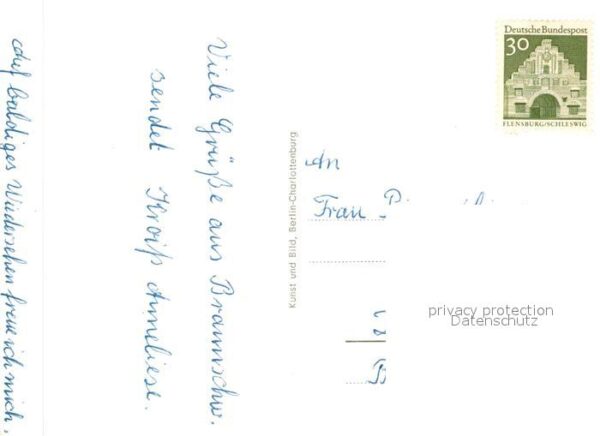 Viele Grüße aus Braunschw.
sendet Kroiß Anneliese.
auf baldiges Wiedersehen freue ich mich.
Kunst und Bild, Berlin-Charlottenburg
Deutsche Bundespost
30
FLENSBURG/SCHLESWIG
An
Frau
privacy protection
Datenschutz